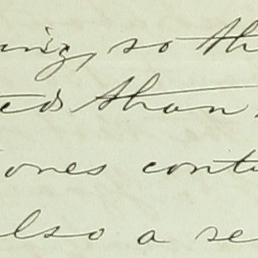 ing, so th
ted than
ones cont
also a se